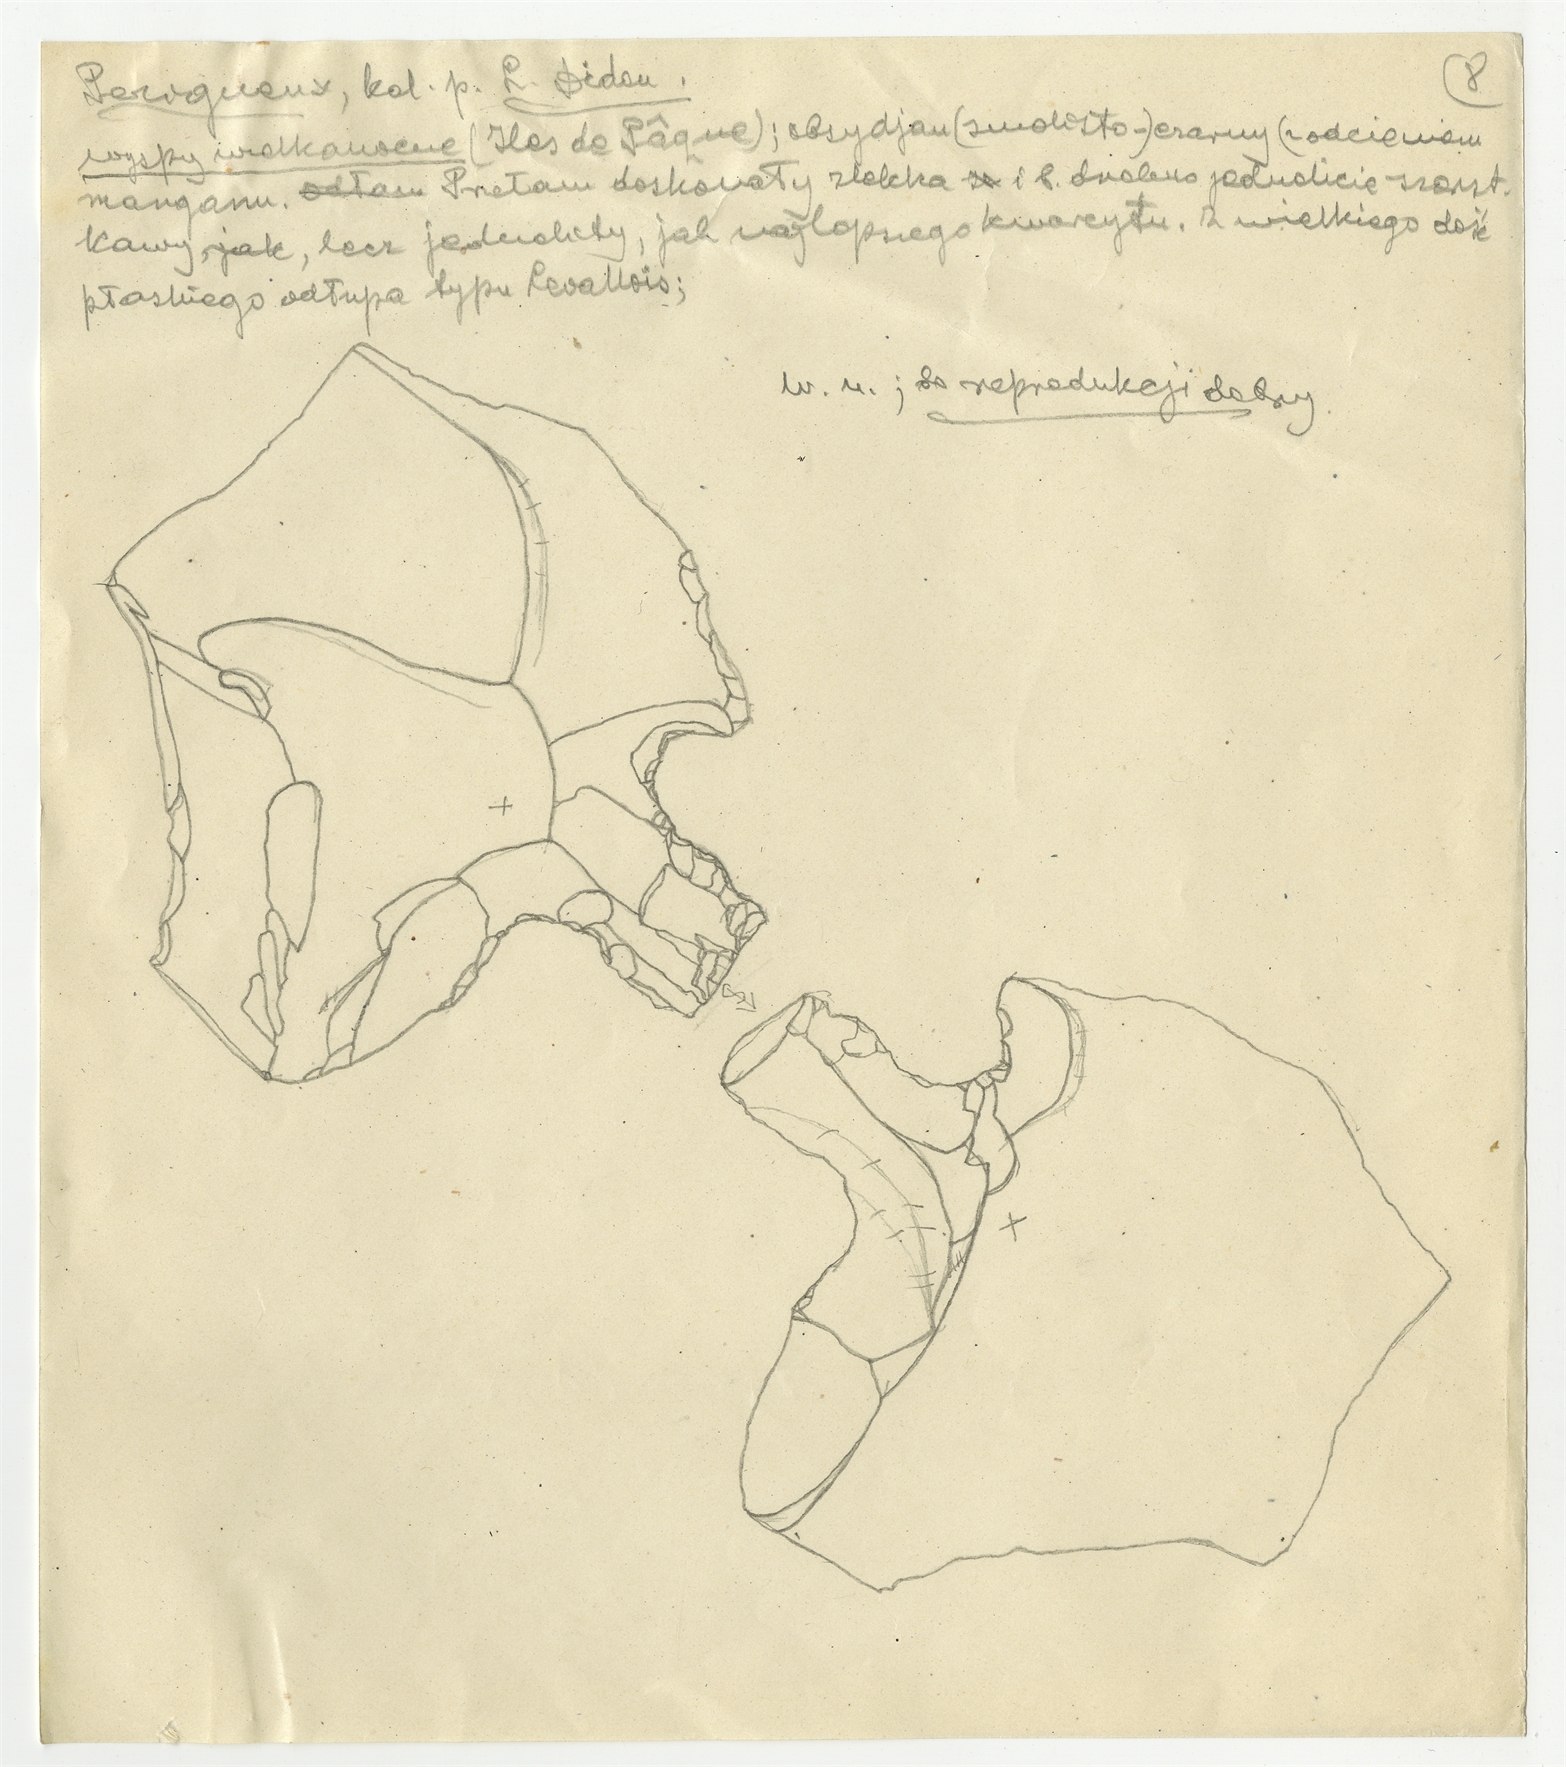 8
Perigueux, kol. p. L. Didon.
wyspy wielkanocne (Iles de Pâque); obsydjan (smolisto-) czarny (z odcieniem
manganu. odłam Przełam doskonały zlekka i b. drobno jednolicie szorst-
kawy, jak, lecz jednolity, jak najlepszego kwarcytu. Z wielkiego dość
płaskiego odłupa typu Levallois;
w. n.; do reprodukcji dobry.